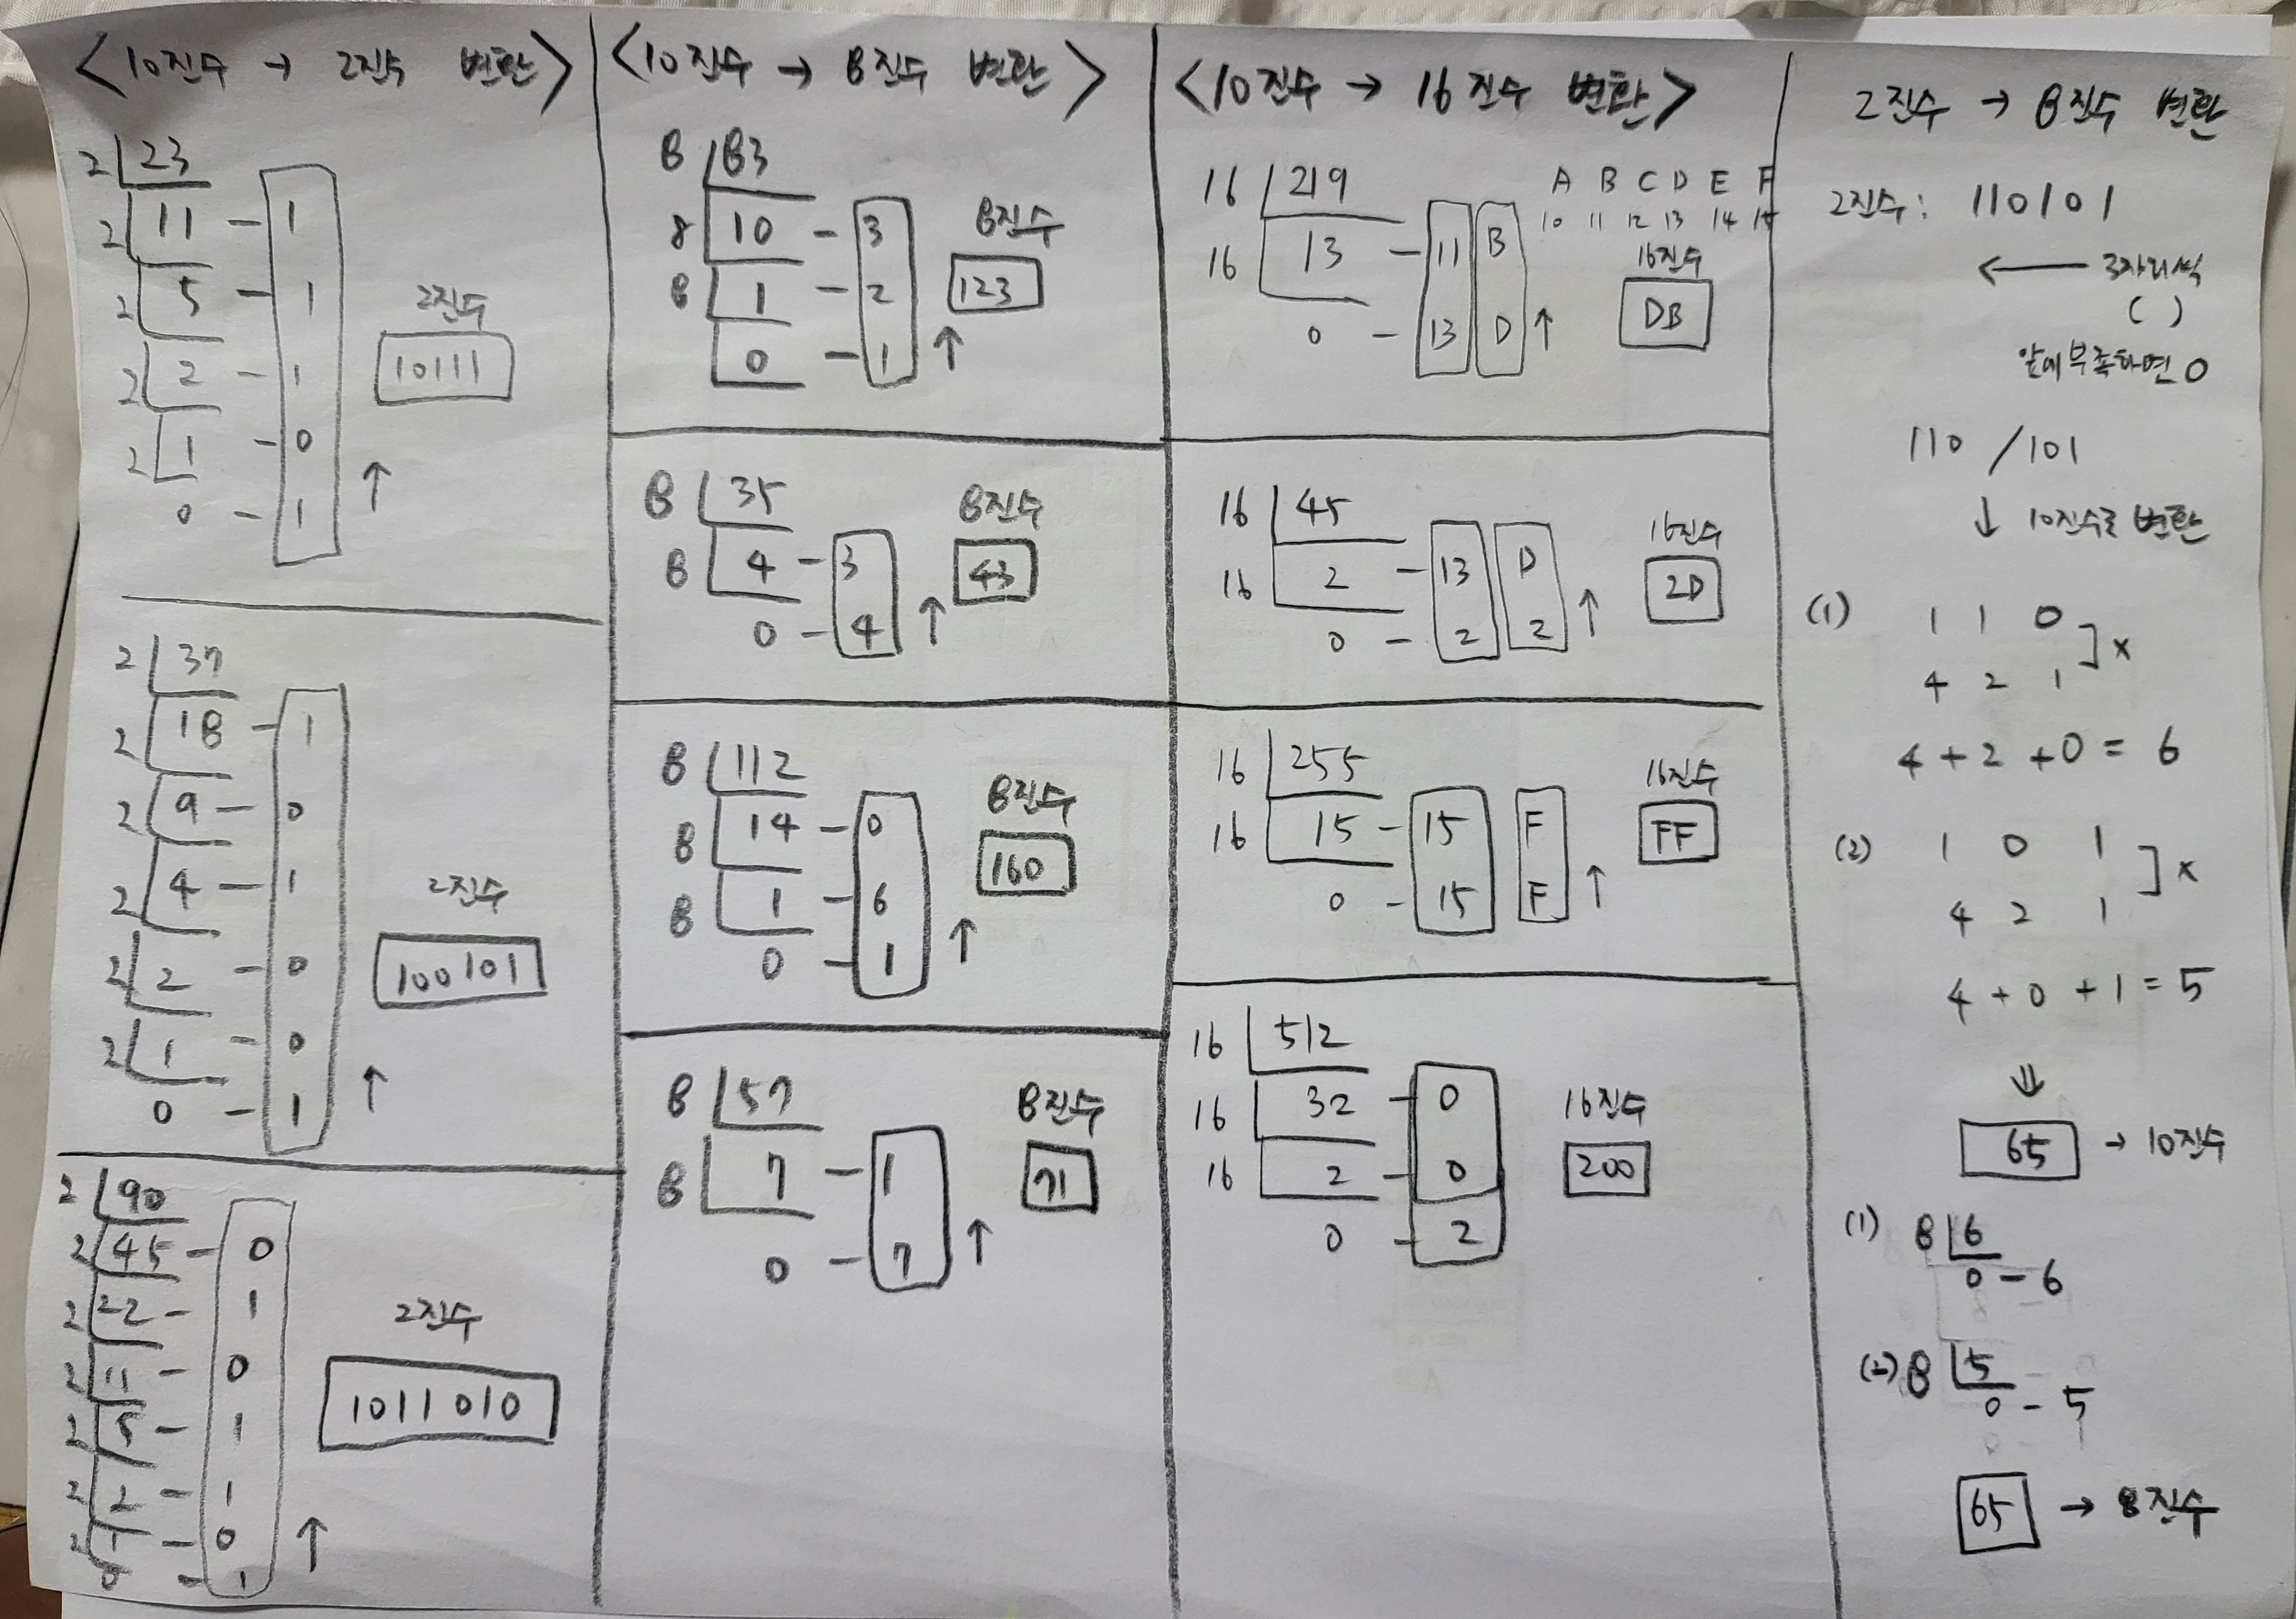 <10진수 → 2진수 변환>
2 23
2 11 - 1
2 5 - 1
2 2 - 1
2 1 - 0
0 - 1
↑
2진수
10111
2 37
2 18 - 1
2 9 - 0
2 4 - 1
2 2 - 0
2 1 - 0
0 - 1
↑
2진수
100101
2 90
2 45 - 0
2 22 - 1
2 11 - 0
2 5 - 1
2 2 - 1
2 1 - 0
0 - 1
↑
2진수
1011010
<10진수 → 8진수 변환>
8 83
8 10 - 3
8 1 - 2
0 - 1
↑
8진수
123
8 35
8 4 - 3
0 - 4
↑
8진수
43
8 112
8 14 - 0
8 1 - 6
0 - 1
↑
8진수
160
8 57
8 7 - 1
0 - 7
↑
8진수
71
<10진수 → 16진수 변환>
16 219
16 13 - 11 B
0 - 13 D
↑
A B C D E F
10 11 12 13 14 15
16진수
DB
16 45
16 2 - 13 D
0 - 2 2
↑
16진수
2D
16 255
16 15 - 15 F
0 - 15 F
↑
16진수
FF
16 512
16 32 - 0
16 2 - 0
0 - 2
16진수
200
2진수 → 8진수 변환
2진수: 110101
← 3자리씩
( )
앞에 부족하면 0
110 / 101
↓ 10진수로 변환
(1) 1 1 0
] ×
4 2 1
4 + 2 + 0 = 6
(2) 1 0 1
] ×
4 2 1
4 + 0 + 1 = 5
⇓
65 → 10진수
(1) 8 6
0 - 6
(2) 8 5
0 - 5
65 → 8진수